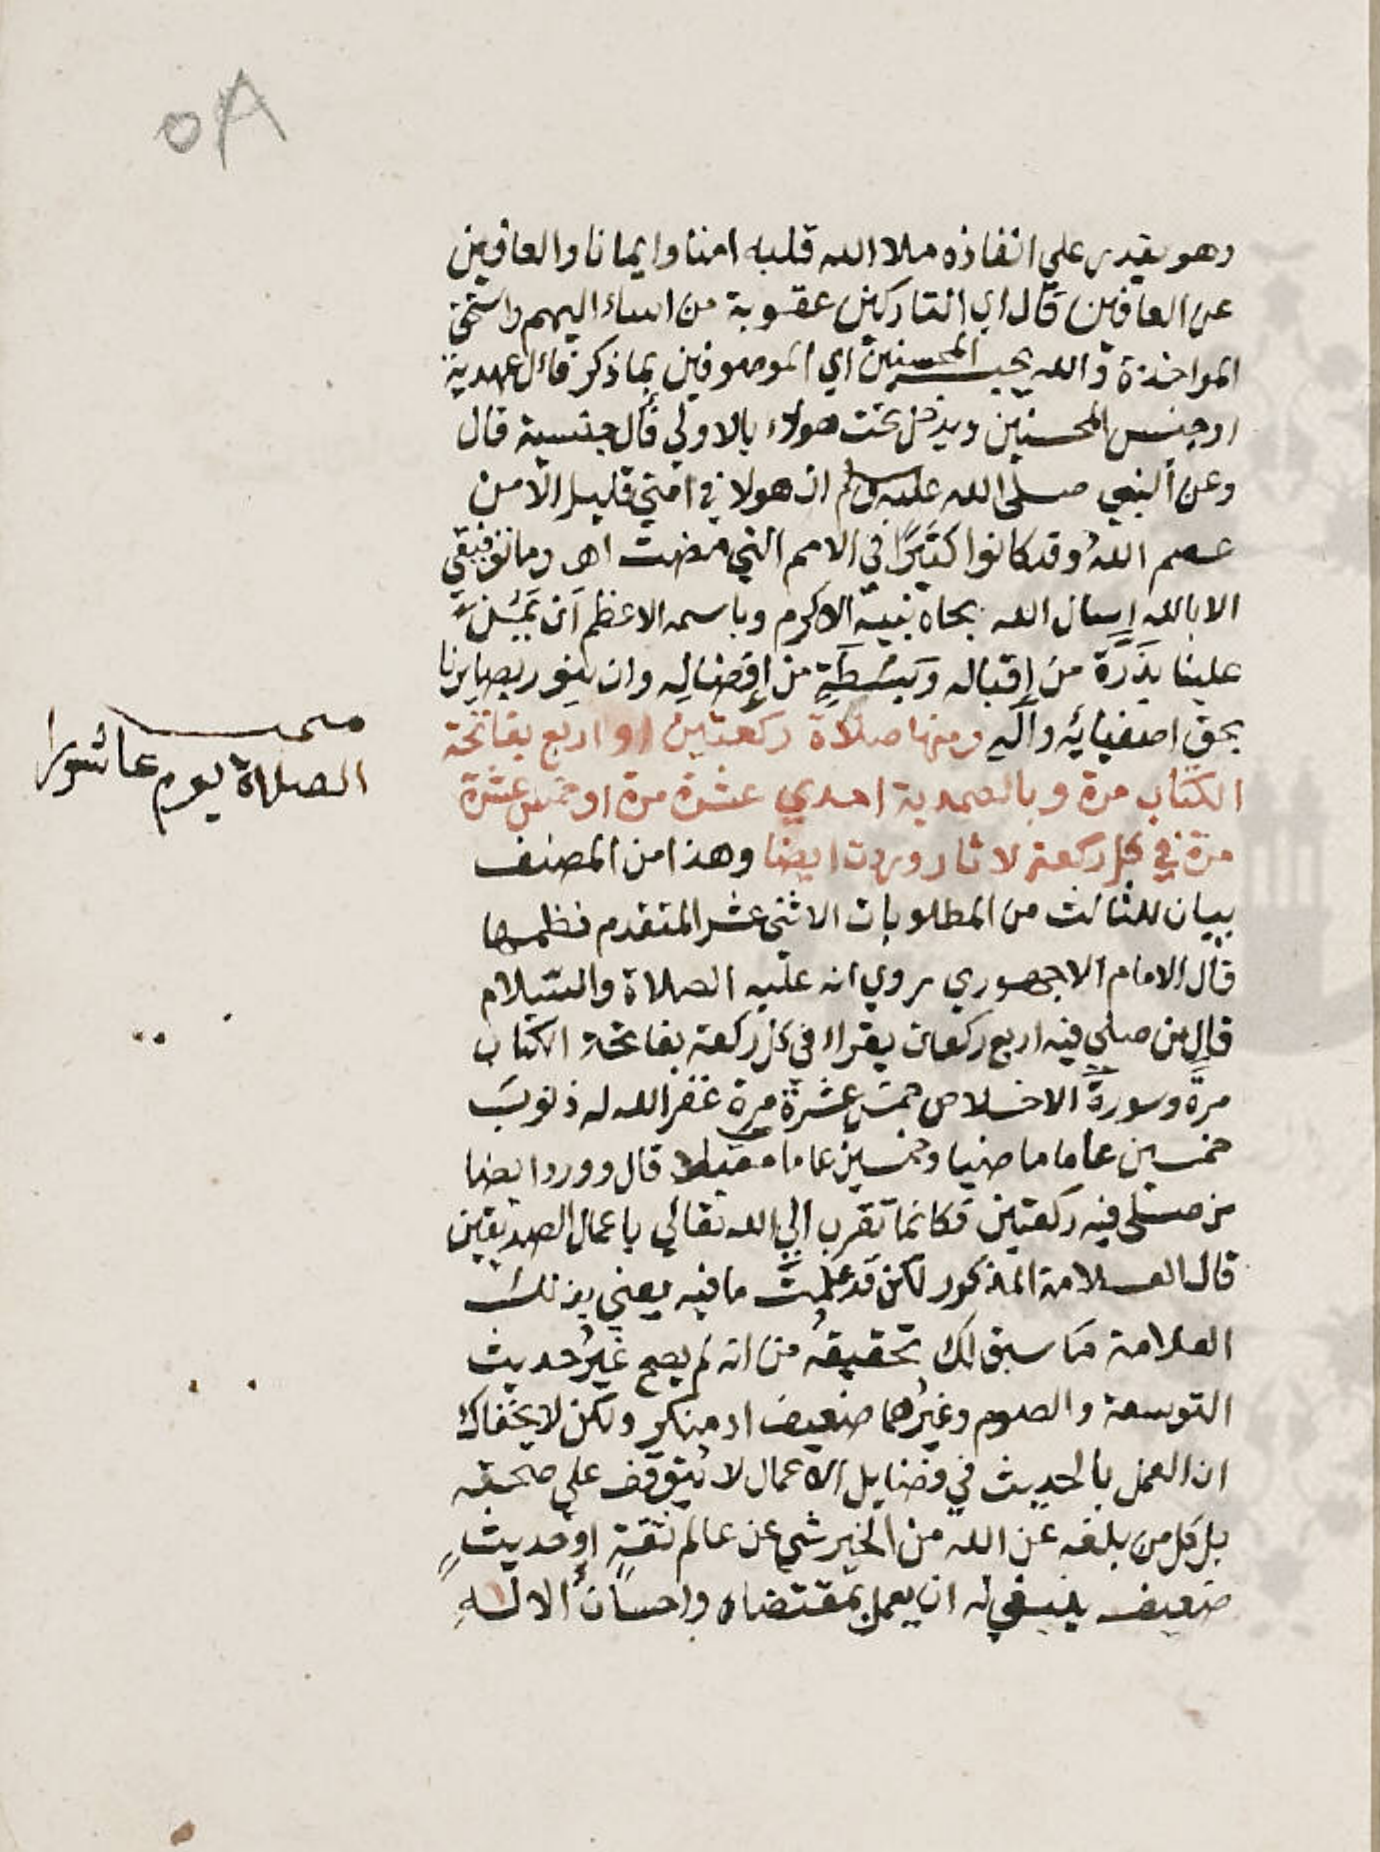 ٥٨
وهو يقدر علي انفاذه ملا الله قلبه امنا وايمانا والعافين
عن العافين قال اي التاركين عقوبة من اساء اليهم واستحق
المواخذة والله يحب المحسنين اي الموصوفين بما ذكر فال عهدية
او جنس المحسنين ويدخل تحت هولاء بالاولي فأل جنسية قال
وعن النبي صلي الله عليه وسلم ان هولا في امتي قليل الا من
عصم الله وقد كانوا كثيرًا في الامم التي مضت اهـ وما توفيقي
الا بالله اسال الله بجاه نبيه الاكرم وباسمه الاعظم ان يمن
علينا بذرة من إقباله وبسطة من إفضاله وان ينور بصايرنا
بحق اصفيائه واله ومنها صلاة ركعتين او اربع بفاتحة
محـــ
الصلاة يوم عاشورا
الكتاب مرة وبالصمدية احدي عشرة مرة او خمس عشرة
مرة في كل ركعة لاثار وردت ايضا وهذا من المصنف
بيان للثالث من المطلوبات الاثني عشر المتقدم نظمها
قال الامام الاجهوري روي انه عليه الصلاة والسلام
قال من صلي فيه اربع ركعات يقراء في كل ركعة بفاتحة الكتاب
مرة وسورة الاخلاص خمس عشرة مرة غفر الله له ذنوب
خمسين عاما ماضيا وخمسين عاما مقبلا قال وورد ايضا
من صلي فيه ركعتين فكانما تقرب الي الله تعالي باعمال الصديقين
قال العلامة المذكور لكن قد علمت ما فيه يعني بذلك
العلامة ما سبق لك تحقيقه من انه لم يصح غير حديث
التوسعة والصوم وغيرهما ضعيف او منكر ولكن لا يخفاك
ان العمل بالحديث في فضايل الاعمال لا يتوقف علي صحته
بل كل من بلغه عن الله من الخير شي عن عالم ثقة او حديث
ضعيف ينبغي له ان يعمل بمقتضاه واحسان الاله